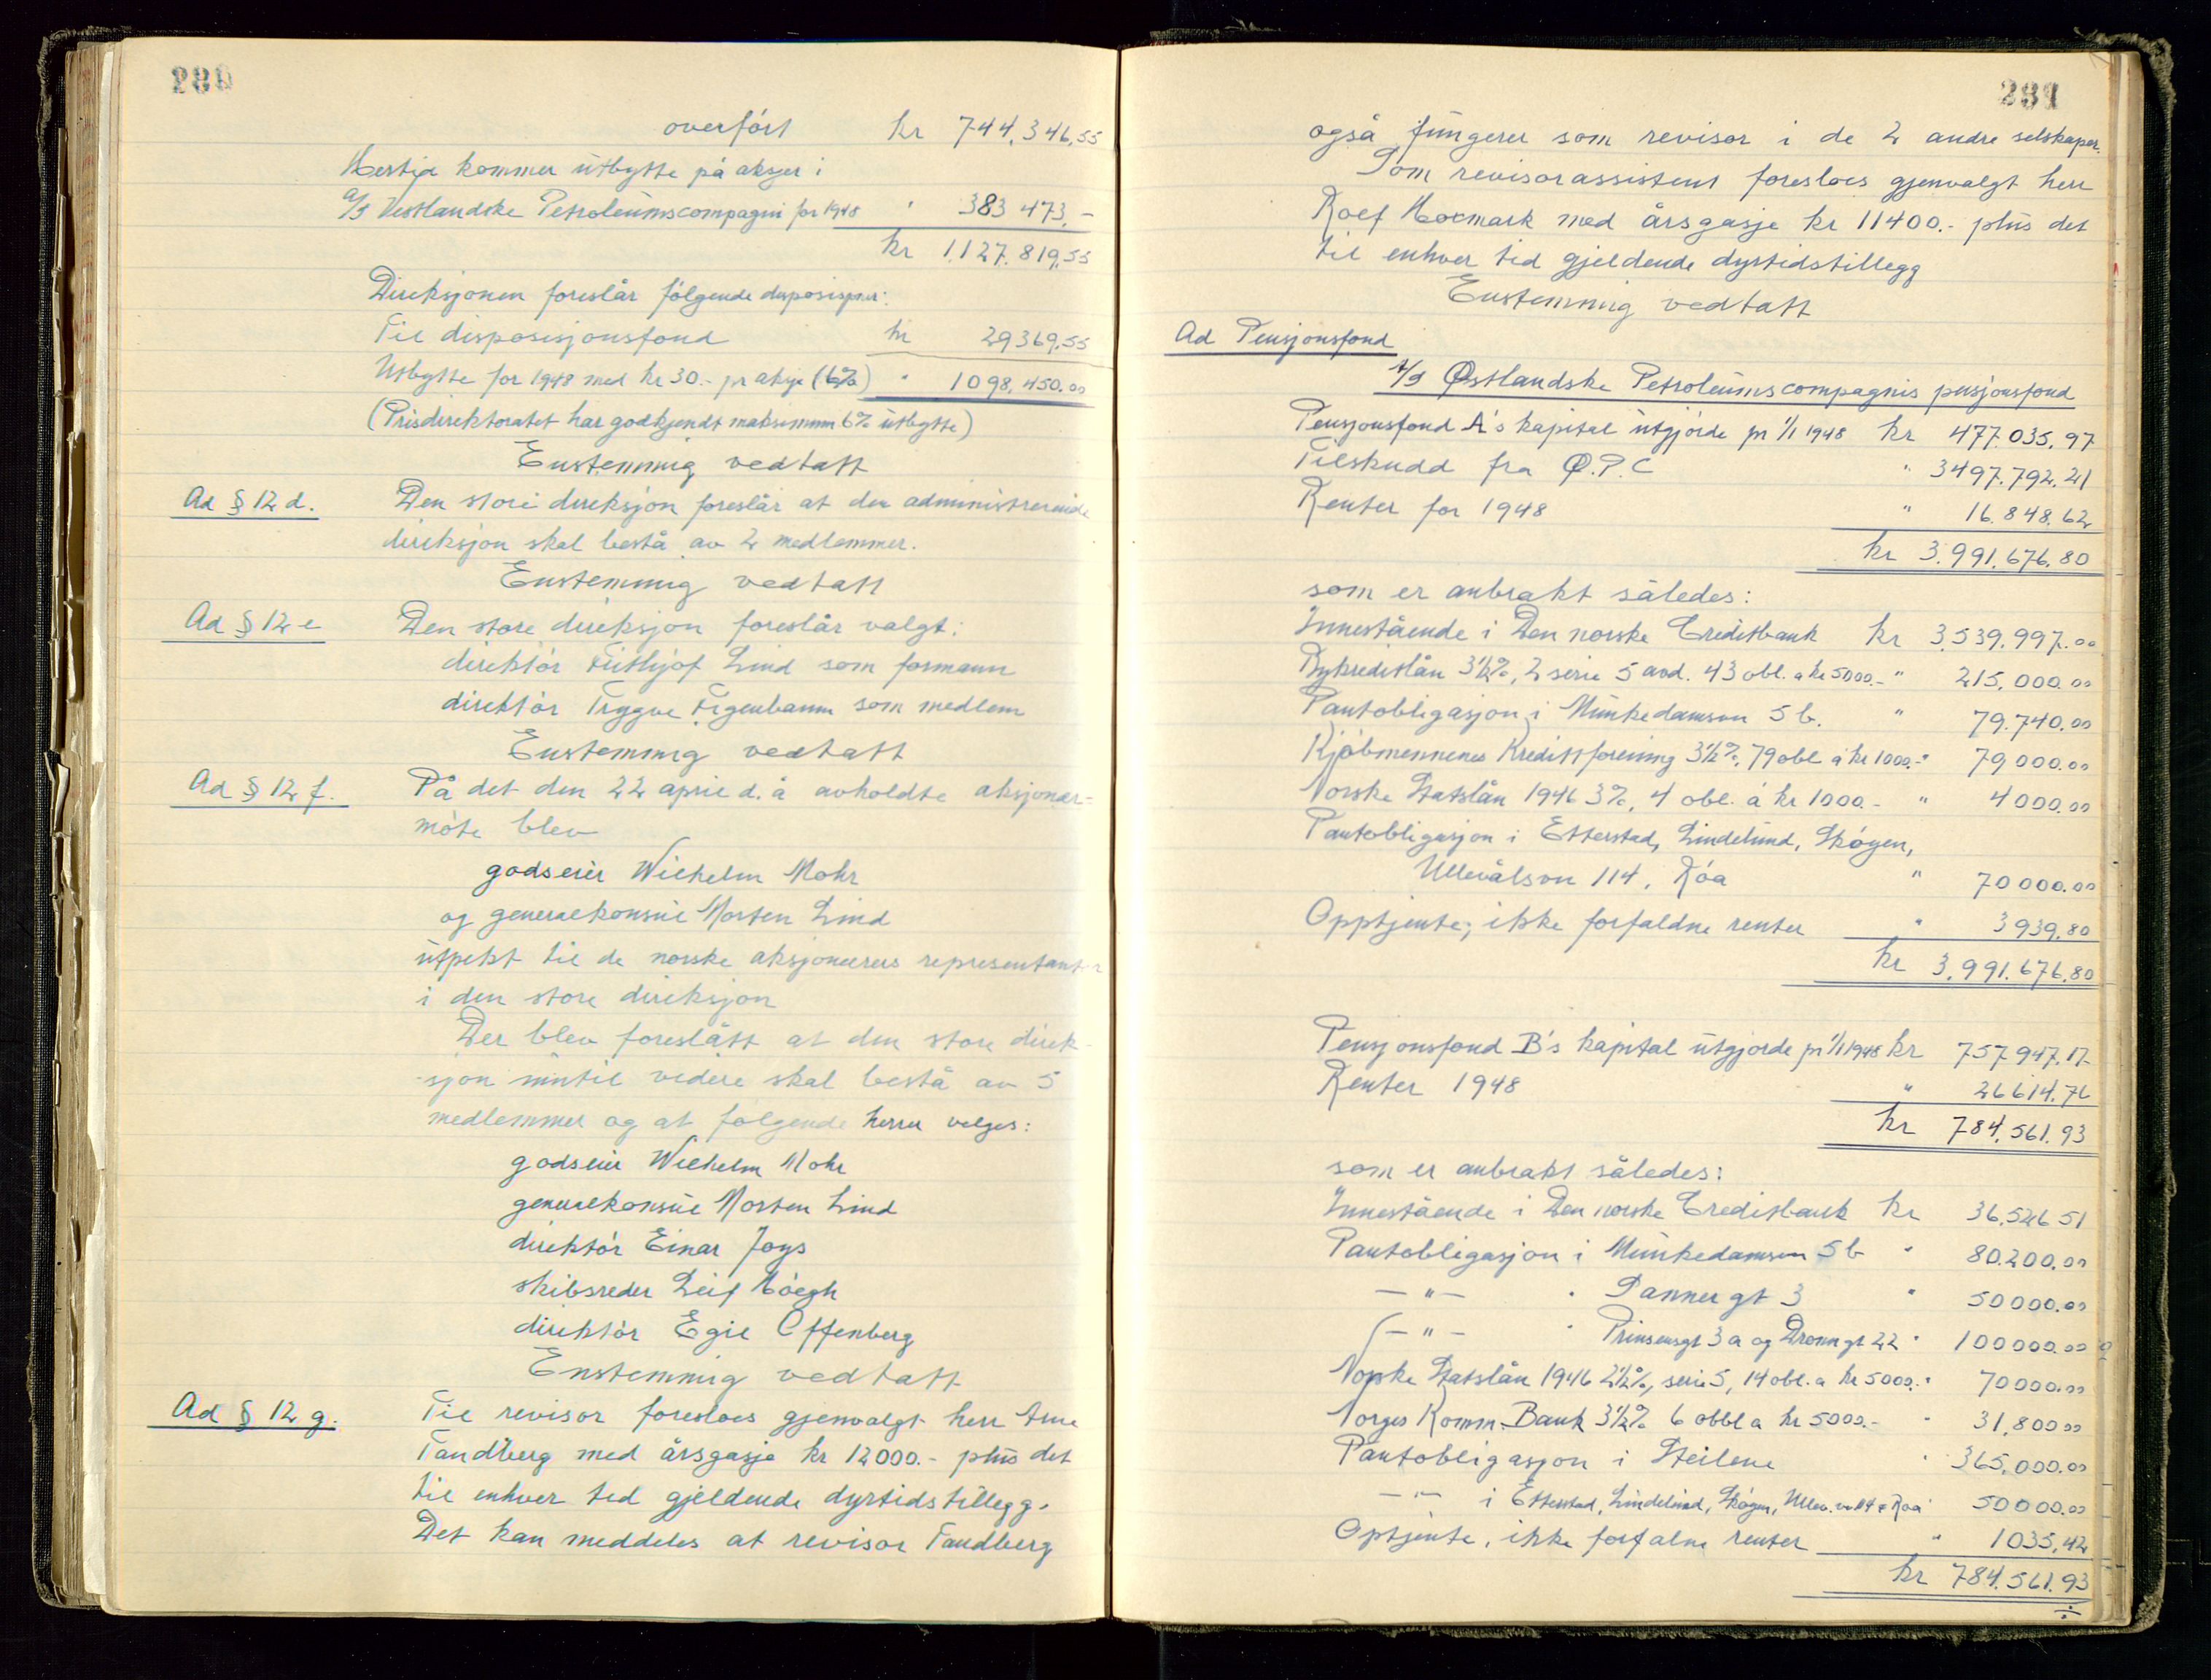 280
overført kr 744,346,55
Hertil kommer utbytte på aksjer i
A/S Vestlandske Petroleumscompagni for 1948 " 383 473.-
kr 1,127.819,55
Direksjonen foreslår følgende disposisjoner:
Til disposisjonsfond kr 29369,55
Utbytte for 1948 med kr 30.- pr aksje (6%) " 1098,450.00
(Prisdirektoratet har godkjendt maksimum 6% utbytte)
Enstemmig vedtatt
Ad § 12 d. Den store direksjon foreslår at den administrerende
direksjon skal bestå av 2 medlemmer.
Enstemmig vedtatt
Ad § 12 e Den store direksjon foreslår valgt:
direktør Frithjof Lind som formann
direktør Trygve Figenbaum som medlem
Enstemmig vedtatt
Ad § 12 f. På det den 22 april d. å avholdte aksjonær=
møte blev
godseier Wilhelm Mohr
og generalkonsul Morten Lind
utpekt til de norske aksjonærers representanter
i den store direksjon
Der blev foreslått at den store direk-
-sjon inntil videre skal bestå av 5
medlemmer og at følgende herrer velges:
godseier Wilhelm Mohr
generalkonsul Morten Lind
direktør Einar Joys
skibsreder Leif Höegh
direktør Egil Offenberg
Enstemmig vedtatt
Ad § 12 g. Til revisor foresloes gjenvalgt herr Arne
Tandberg med årsgasje kr 12000.- plus det
til enhver tid gjeldende dyrtidstillegg.
Det kan meddeles at revisor Tandberg
281
også fungerer som revisor i de 2 andre selskaper.
Som revisorassistent foresloes gjenvalgt herr
Rolf Hoxmark med årsgasje kr 11400.- plus det
til enhver tid gjeldende dyrtidstillegg
Enstemmig vedtatt
Ad Pensjonsfond
A/S Østlandske Petroleumscompagnis pensjonsfond
Pensjonsfond A's kapital utgjorde pr 1/1 1948 kr 477.035,97
Tilskudd fra Ø.P.C " 3497.792.21
Renter for 1948 " 16.848.62
kr 3.991.676.80
som er anbrakt således:
Innestående i Den norske Creditbank kr 3,539,997.00
Bykredittlån 3½%, 2 serie 5 avd. 43 obl. a kr 5000.- " 215,000.00
Pantobligasjon i Munkedamsvn 5 b. " 79.740.00
Kjøbmennenes Kredittforening 3½%, 79 obl á kr 1000.- " 79000.00
Norske Statslån 1946 3%, 4 obl. á kr 1000.- " 4000.00
Pantobligasjon i Etterstad, Lindelund, Skøyen,
Ullevålsvn 114, Røa " 70000.00
Opptjente, ikke forfaldne renter " 3939,80
kr 3,991.676,80
Pensjonsfond B's kapital utgjorde pr 1/1 1948 kr 757.947.17
Renter 1948 " 26614.76
kr 784,561.93
som er anbrakt således:
Innestående i Den norske Creditbank kr 36,526 51
Pantobligasjon i Munkedamsvn 5 b " 80.200.00
— " — " Sannergt 3 " 50000.00
— " — " Prinsensgt 3 a og Dronn gt 22 " 100000.00
Norske Statslån 1946 2½%, serie 5, 14 obl. a kr 5000.- " 70000.00
Norges Komm. Bank 3½% 6 obbl a kr 5000.- " 31,80000
Pantobligasjon i Steilene " 365,000.00
— " — i Etterstad, Lindelund, Skøyen, Ullev. vn 114 & Røa " 50000.00
Optjente, ikke forfalne renter " 1035,42
kr 784.561.93